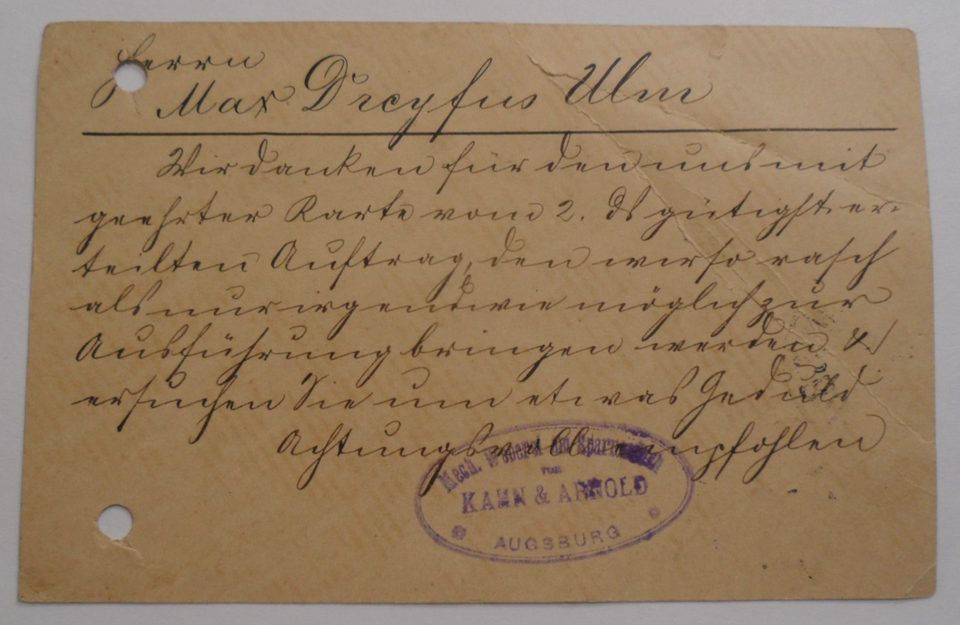 Herrn
Max Dreyfus Ulm
Wir danken für den uns mit
geehrter Karte vom 2. ds gütigst er-
teilten Auftrag, den wir so rasch
als nur irgendwie möglich zur
Ausführung bringen werden &
ersuchen Sie um etwas Geduld
Achtungsvoll empfohlen
Mech. Weberei am
von
KAHN & ARNOLD
AUGSBURG